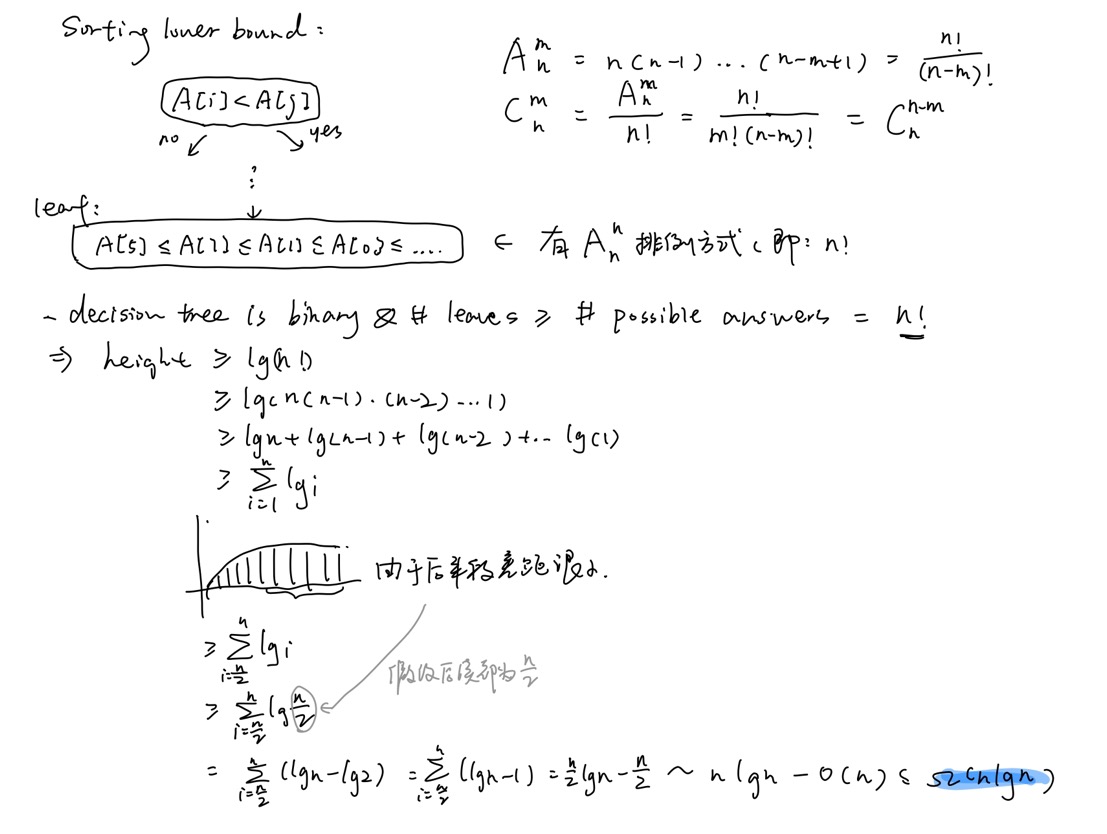 Sorting lower bound :
A[i] < A[j]
no
yes
⋮
leaf:
A[5] ≤ A[7] ≤ A[1] ≤ A[0] ≤ ....
← 有 A_n^n 排列方式 (即: n!
A_n^m = n(n-1) ... (n-m+1) = n!/(n-m)!
C_n^m = A_n^m/n! = n!/(m!(n-m)!) = C_n^{n-m}
- decision tree is binary & # leaves ≥ # possible answers = n!
⇒ height ≥ lg(n!)
≥ lg(n(n-1)·(n-2)...1)
≥ lgn + lg(n-1) + lg(n-2) + ... lg(1)
≥ Σ_{i=1}^{n} lg i
由于后半段差距很小.
≥ Σ_{i=n/2}^{n} lg i
假设后续都为 n/2
≥ Σ_{i=n/2}^{n} lg n/2
= Σ_{i=n/2}^{n} (lgn - lg2) = Σ_{i=n/2}^{n} (lgn - 1) = n/2 lgn - n/2 ~ n lgn - O(n) ≤ Ω(nlgn)